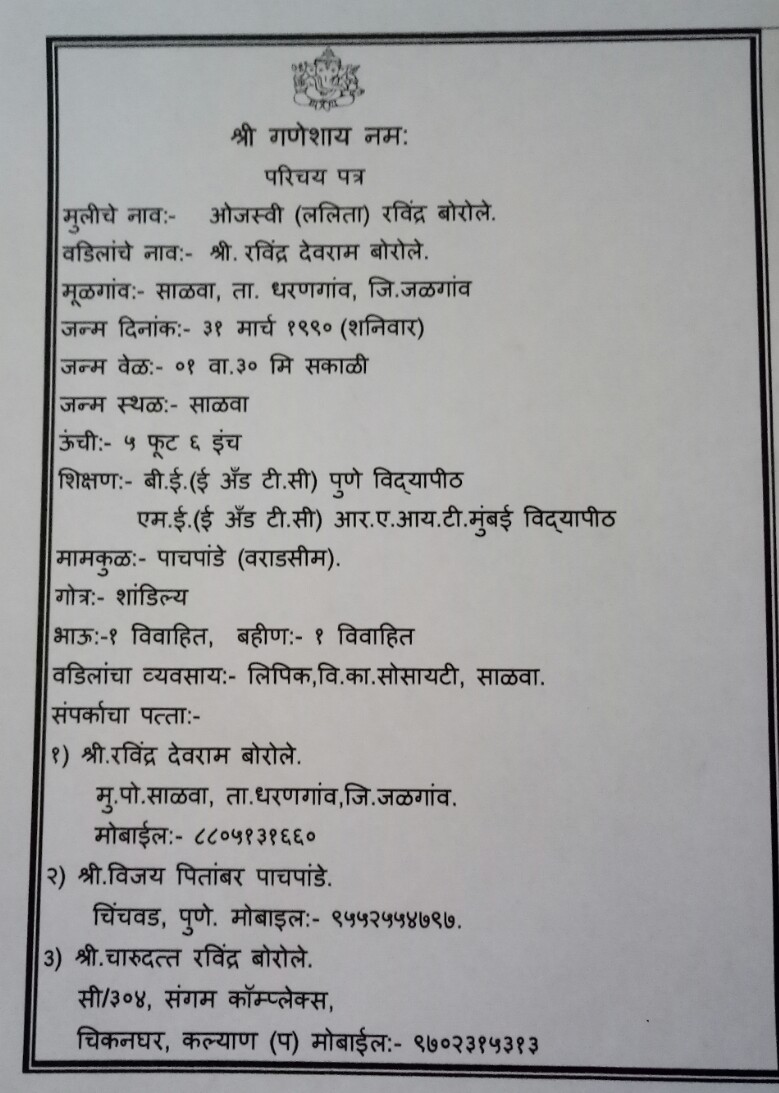 श्री गणेशाय नम:
परिचय पत्र
मुलीचे नाव:- ओजस्वी (ललिता) रविंद्र बोरोले.
वडिलांचे नाव:- श्री. रविंद्र देवराम बोरोले.
मूळगांव:- साळवा, ता. धरणगांव, जि.जळगांव
जन्म दिनांक:- ३१ मार्च १९९० (शनिवार)
जन्म वेळ:- ०१ वा.३० मि सकाळी
जन्म स्थळ:- साळवा
ऊंची:- ५ फूट ६ इंच
शिक्षण:- बी.ई.(ई अँड टी.सी) पुणे विद्यापीठ
एम.ई.(ई अँड टी.सी) आर.ए.आय.टी.मुंबई विद्यापीठ
मामकुळ:- पाचपांडे (वराडसीम).
गोत्र:- शांडिल्य
भाऊ:-१ विवाहित, बहीण:- १ विवाहित
वडिलांचा व्यवसाय:- लिपिक,वि.का.सोसायटी, साळवा.
संपर्काचा पत्ता:-
१) श्री.रविंद्र देवराम बोरोले.
मु.पो.साळवा, ता.धरणगांव,जि.जळगांव.
मोबाईल:- ८८०५१३१६६०
२) श्री.विजय पितांबर पाचपांडे.
चिंचवड, पुणे. मोबाइल:- ९५५२५५४७९७.
३) श्री.चारुदत्त रविंद्र बोरोले.
सी/३०४, संगम कॉम्प्लेक्स,
चिकनघर, कल्याण (प) मोबाईल:- ९७०२३१५३१३